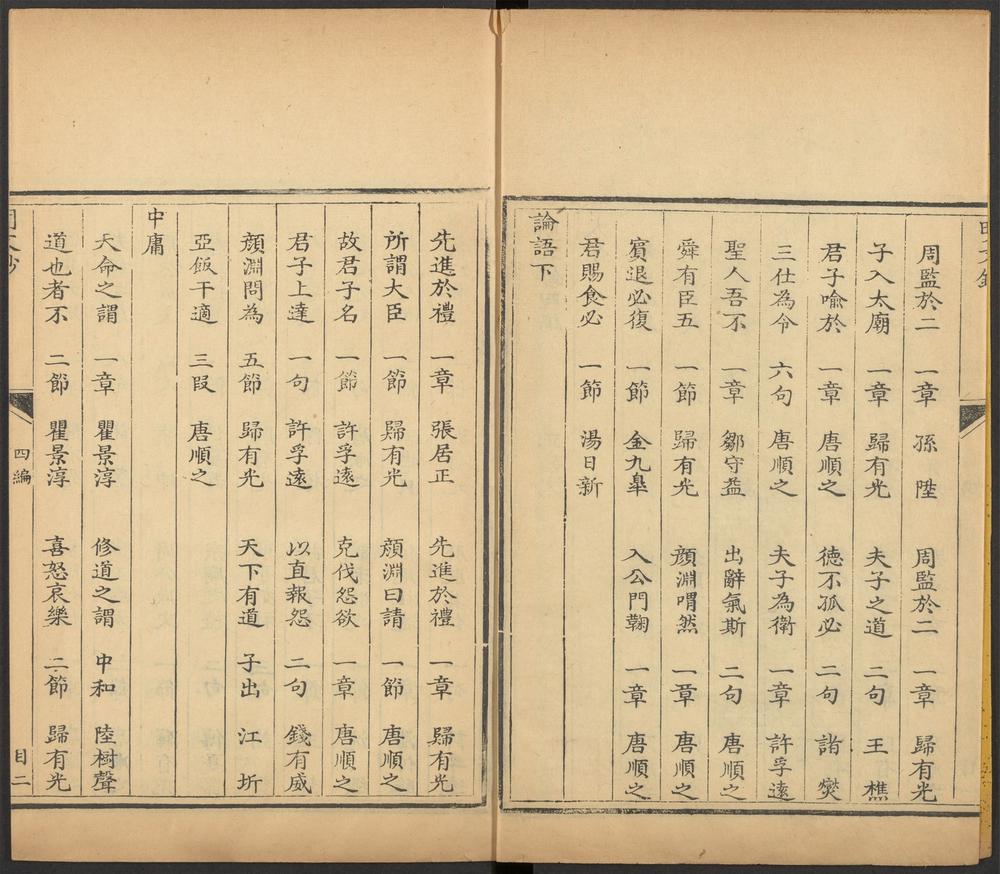 周監於二 一章 孫陞 周監於二 一章 歸有光
子入太廟 一章 歸有光 夫子之道 二句 王樵
君子喻於 一章 唐順之 德不孤必 二句 諸燮
三仕為令 六句 唐順之 夫子為衛 一章 許孚遠
聖人吾不 一章 鄒守益 出辭氣斯 二句 唐順之
舜有臣五 一節 歸有光 顏淵喟然 一章 唐順之
賓退必復 一節 金九皐 入公門鞠 一章 唐順之
君賜食必 一節 湯日新
論語下
先進於禮 一章 張居正 先進於禮 一章 歸有光
所謂大臣 一節 歸有光 顏淵曰請 一節 唐順之
故君子名 一節 許孚遠 克伐怨欲 一章 唐順之
君子上達 一句 許孚遠 以直報怨 二句 錢有威
顏淵問為 五節 歸有光 天下有道 子出 江圻
亞飯干適 三段 唐順之
中庸
天命之謂 一章 瞿景淳 修道之謂 中和 陸樹聲
道也者不 二節 瞿景淳 喜怒哀樂 二節 歸有光
四編 目二